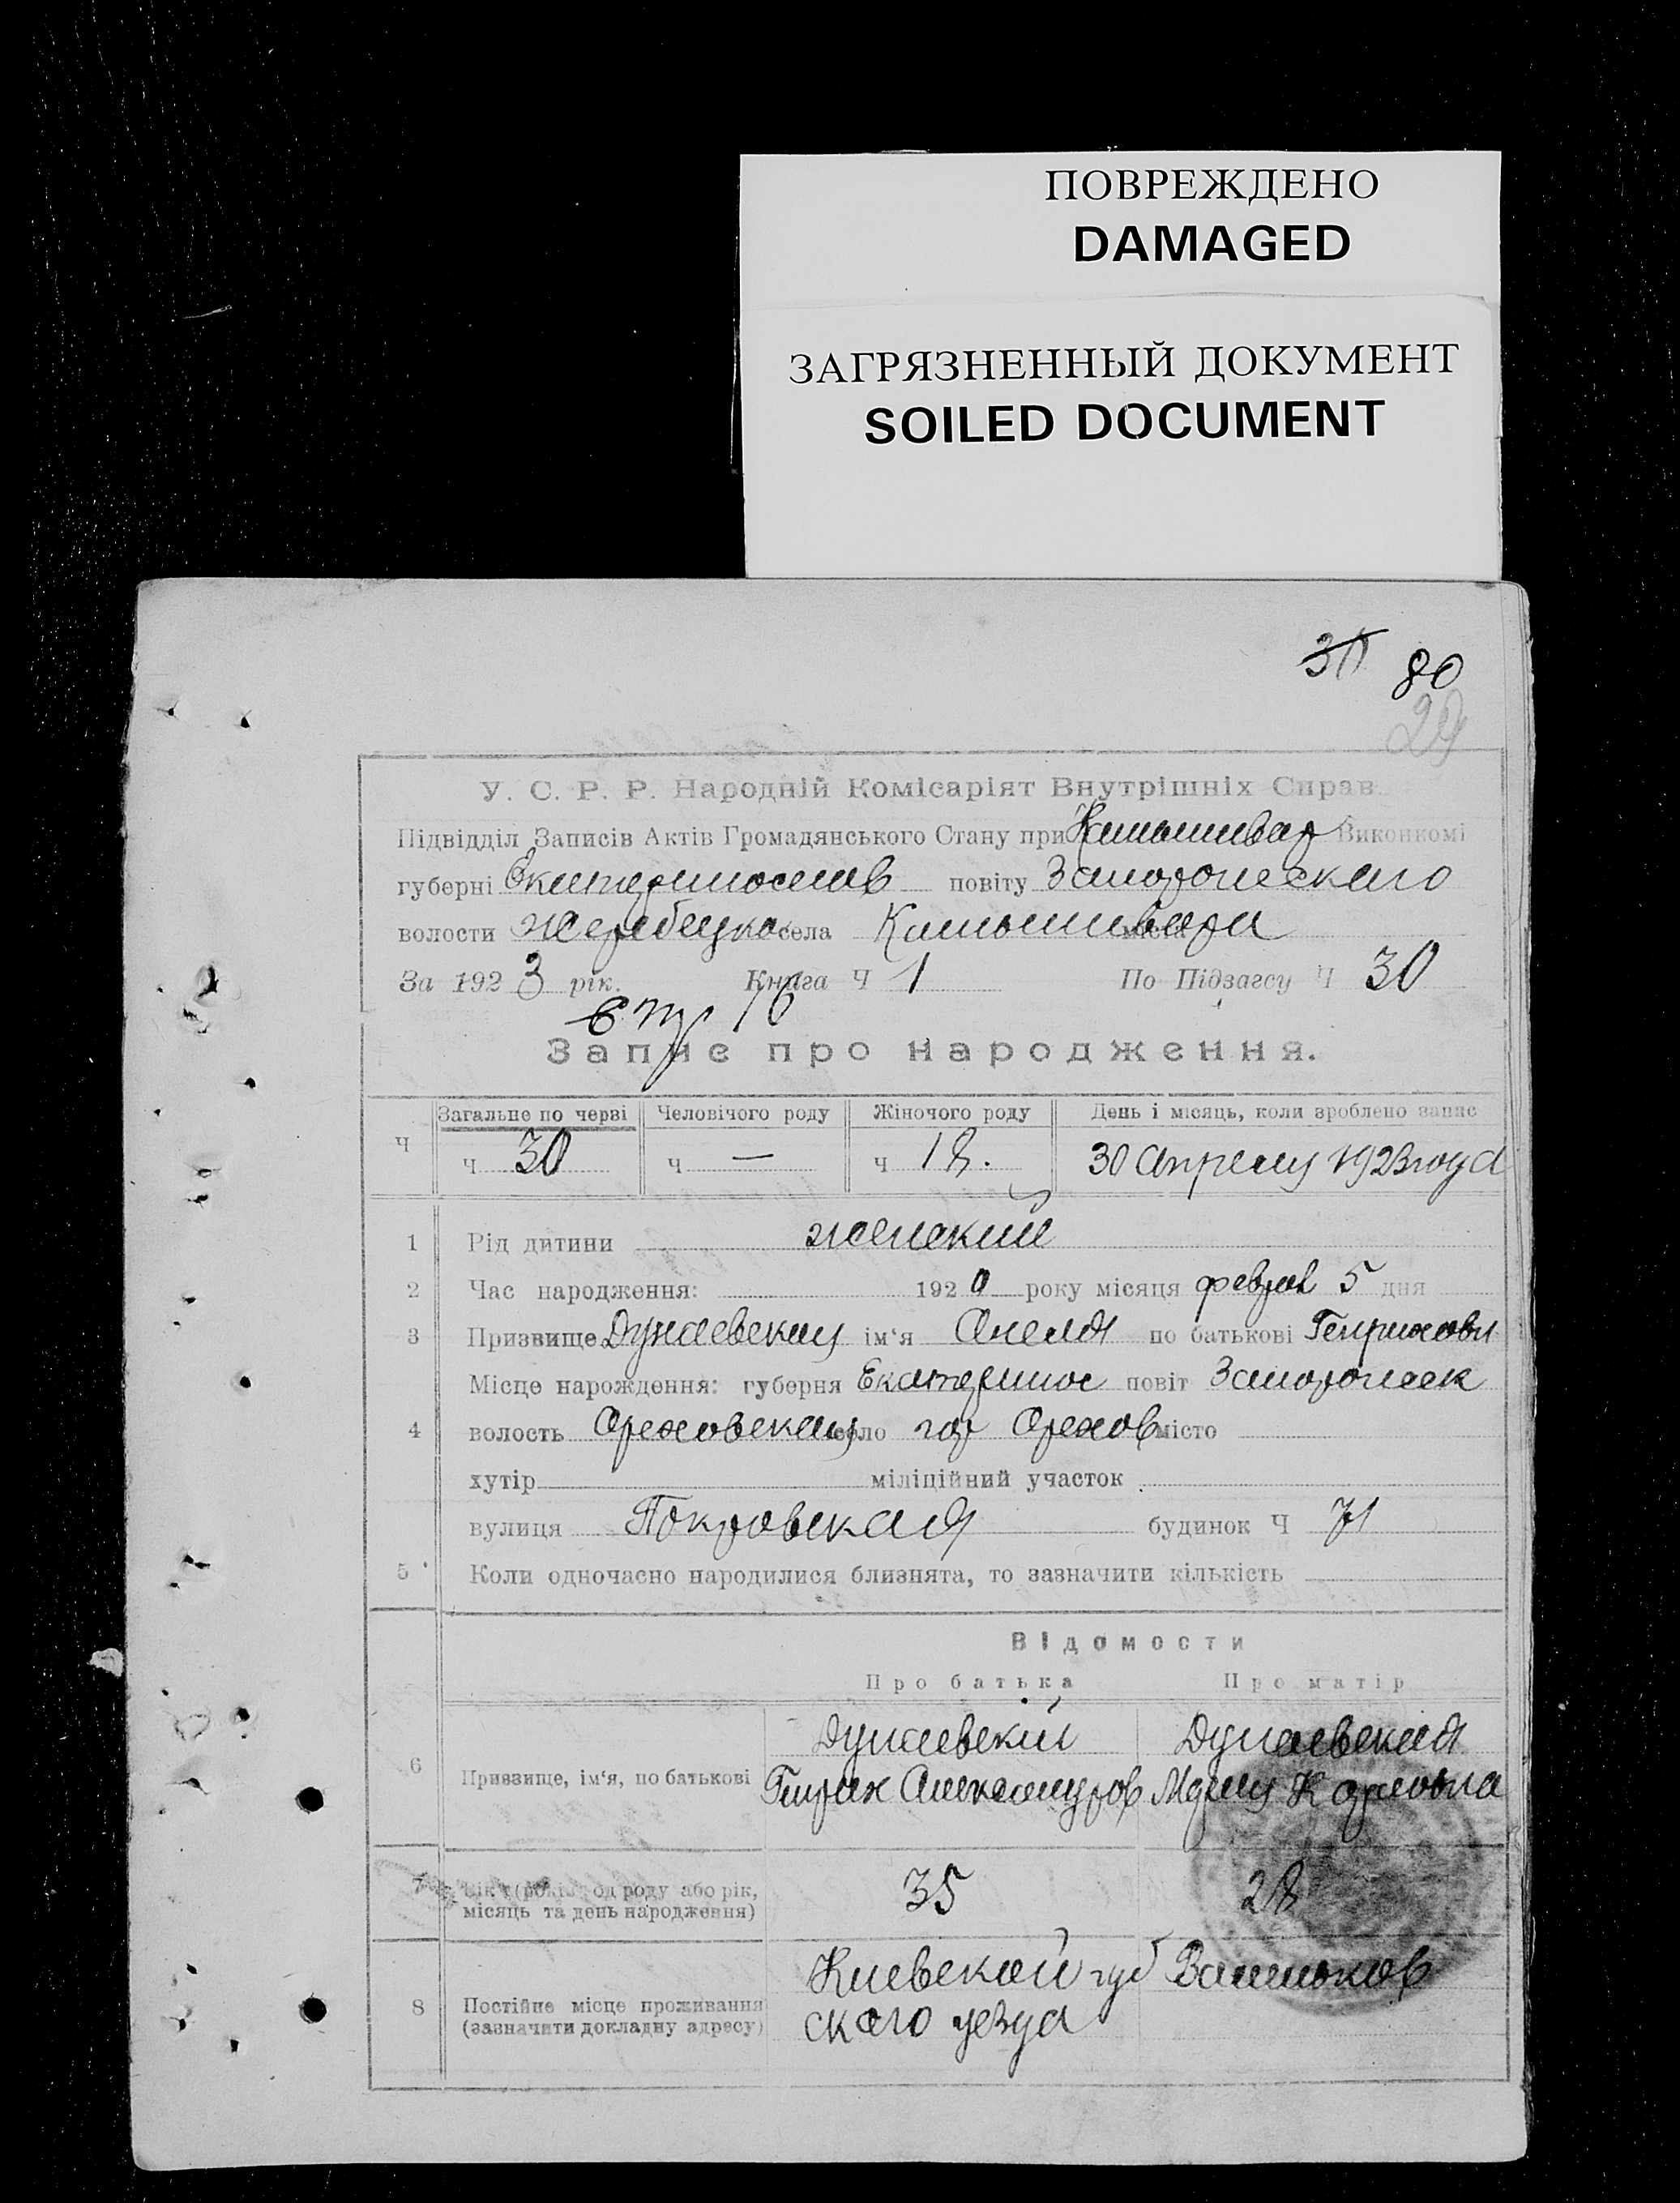 ПОВРЕЖДЕНО
DAMAGED
ЗАГРЯЗНЕННЫЙ ДОКУМЕНТ
SOILED DOCUMENT
80
29
У. С. Р. Р. Народній Комісаріят Внутрішніх Справ
Підвідділ Записів Актів Громадянського Стану при Камышевах Виконкомі
губерні Екатеринослав повіту Запорожскаго
волости Жеребецко села Камышеваха міста
За 1923 рік. Книга Ч 1 По Підзагсу Ч 30
стр 16
Запис про народження.
Загальне по черві Человічого роду Жіночого роду День і місяць, коли зроблено запис
Ч ч 30 ч — ч 18. 30 Апреля 1923 года
1 Рід дитини женский
2 Час народження: 1920 року місяця феврал 5 дня
3 Призвище Дунаевская ім‘я Анеля по батькові Генрихови
Місце нарождення: губерня Екатеринос повіт Запорожск
4 волость Ореховская село гор Орехов місто
хутір міліційний участок
вулиця Покровская будинок Ч 71
5 Коли одночасно народилися близнята, то зазначити кількість
Відомости
Про батька Про матір
Дунаевский Дунаевская
6 Призвище, ім‘я, по батькові Генрих Александров Мария Карловна
7 вік (років од роду або рік, 35 28
місяць та день народження)
Киевской губ Васильков
8 Постійне місце проживання ского уезда
(зазначити докладну адресу)